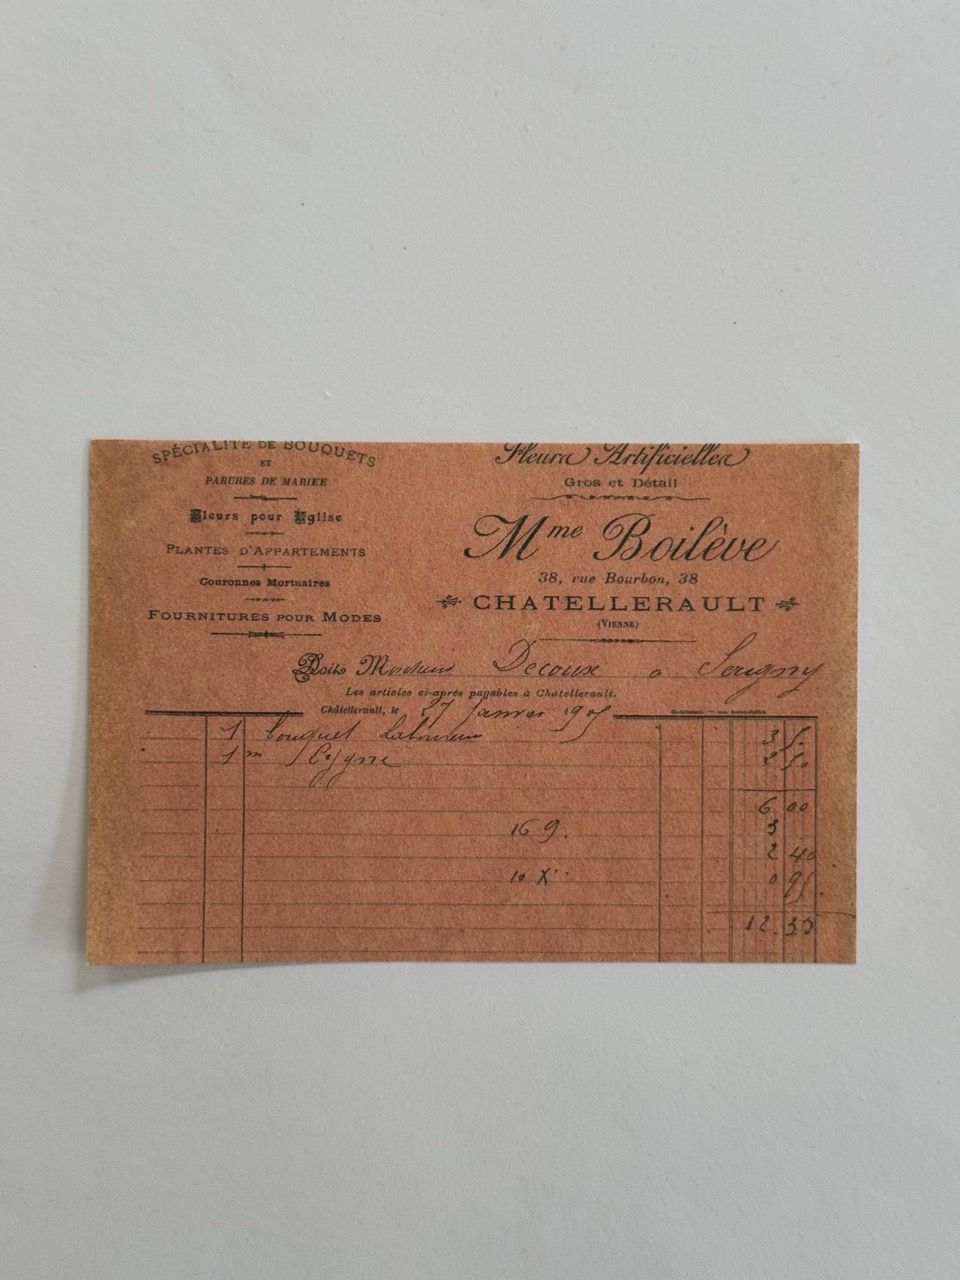 SPÉCIALITÉ DE BOUQUETS
ET
PARURES DE MARIÉE
Fleurs pour Église
PLANTES D'APPARTEMENTS
Couronnes Mortuaires
FOURNITURES POUR MODES
Fleurs Artificielles
Gros et Détail
Mme Boilève
38, rue Bourbon, 38
CHATELLERAULT
(VIENNE)
Doit Decoux à Serigny
Les articles ci-après payables à Châtellerault.
Châtellerault, le 27 Janvier
1 bouquet 3 5.
1 m Cygne 2 50
6 00
16 9. 3
2 40
10 X 0 95
12.35